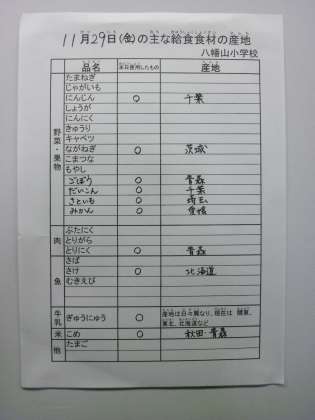 11月29日(金)の主な給食食材の産地
八幡山小学校
品名 本日使用したもの 産地
野菜・果物
たまねぎ
じゃがいも
にんじん ○ 千葉
しょうが
にんにく
きゅうり
キャベツ
ながねぎ ○ 茨城
こまつな
もやし
ごぼう ○ 青森
だいこん ○ 千葉
さといも ○ 埼玉
みかん ○ 愛媛
肉
ぶたにく
とりがら
とりにく ○ 青森
魚
さば
さけ ○ 北海道
むきえび
牛乳 ぎゅうにゅう ○ 産地は日々異なり、現在は 関東、
東北、北海道など
米 こめ ○ 秋田・青森
他 たまご